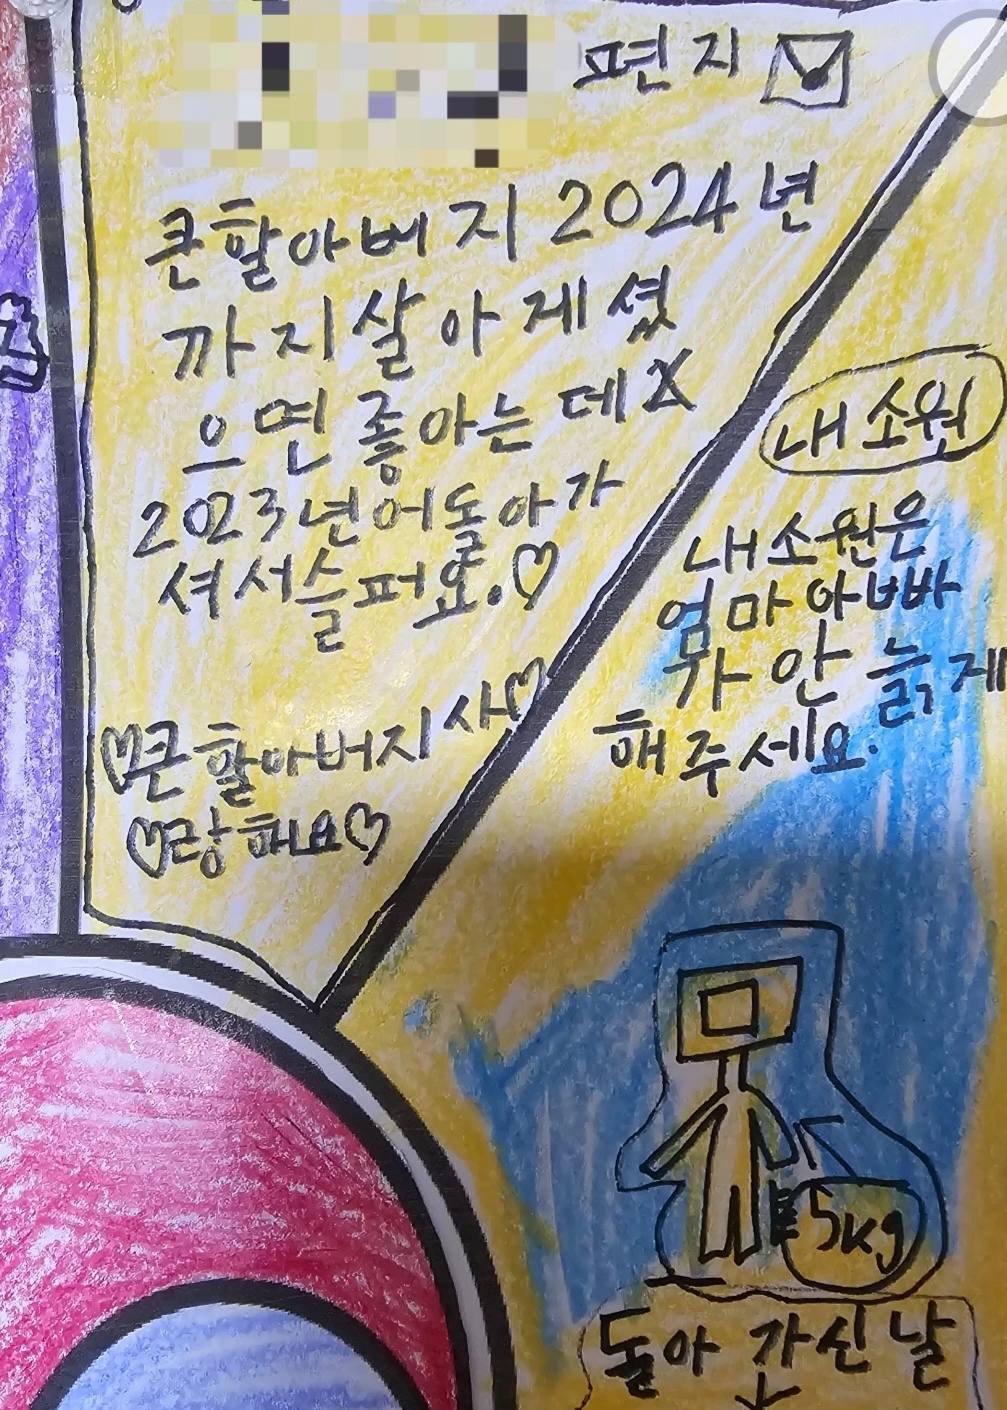 편지
큰할아버지 2024년
까지살아게셨
으면 좋아는데X
2023년에돌아가
셔서슬퍼요.♡
♡큰할아버지 사♡
♡랑해요♡
내소원
내소원은
엄마아빠
가 안 늙게
해주세요.
5kg
돌아가신날